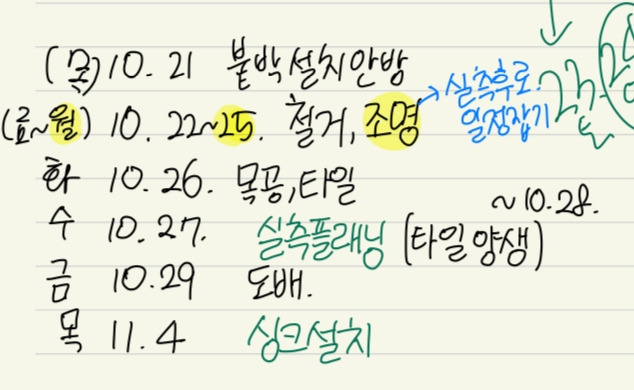 (목) 10.21 붙박설치안방
(금~월) 10.22~25. 철거, 조명 → 실측후로.
일정잡기
화 10.26. 목공, 타일
~10.28.
수 10.27. 실측플래닝 (타일양생)
금 10.29 도배.
목 11.4 싱크설치